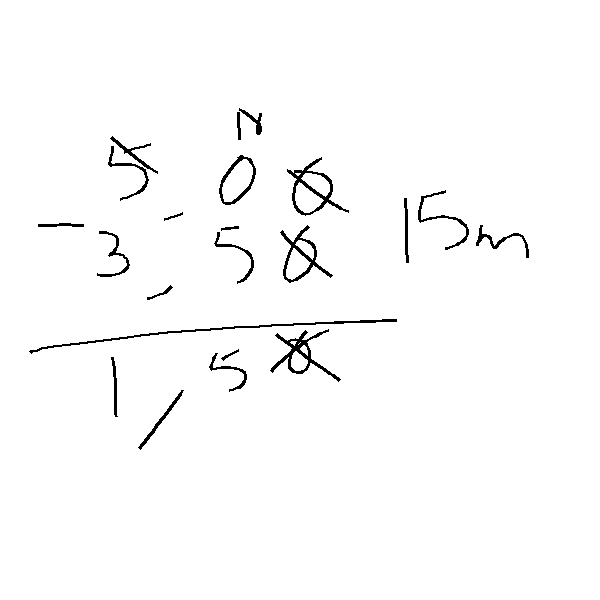 5,00
- 3,50 15m
1,50